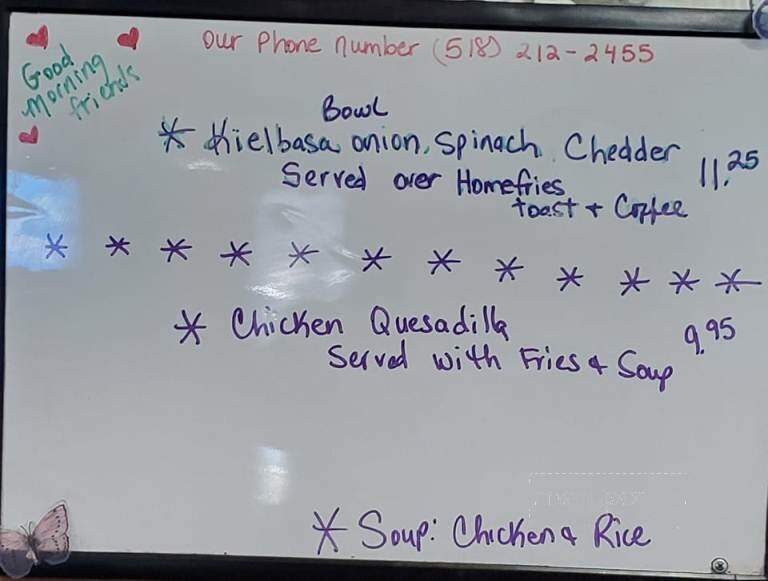 Our Phone number (518) 212-2455
Good
morning
friends
Bowl
* Kielbasa onion, Spinach Chedder 11.25
Served over Homefries
toast + Coffee
* * * * * * * * * * * *
* Chicken Quesadilla 9.95
Served with Fries & Soup
* Soup: Chicken & Rice